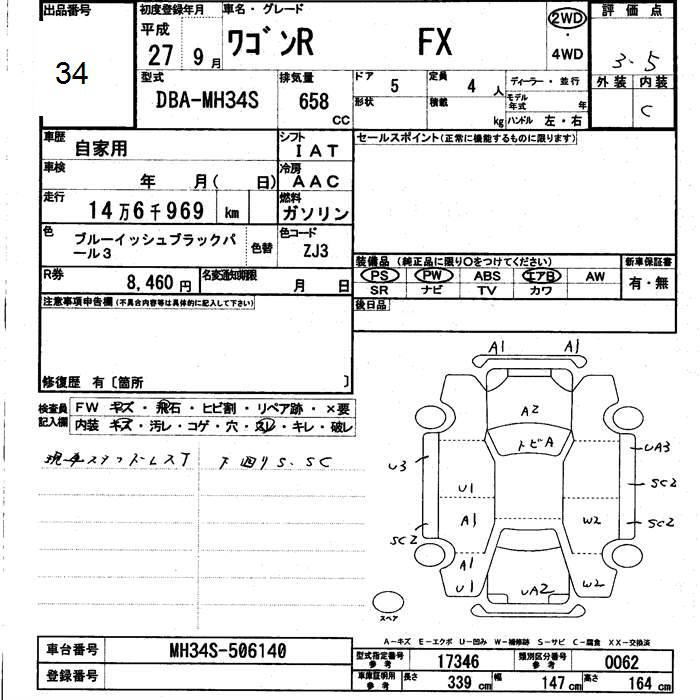 出品番号 初度登録年月 車名・グレード 評価点
34 平成 27 9月 ワゴンR FX 2WD・4WD 3.5
型式 DBA-MH34S 排気量 658 CC ドア 5 定員 4人 ディーラー・並行 外装 内装
形状 積載 kg モデル年式 年 ハンドル 左・右 C
車歴 自家用 シフト IAT セールスポイント(正常に機能するものに限ります)
車検 年 月( 日) 冷房 AAC
走行 14万6千969 km 燃料 ガソリン
色 ブルーイッシュブラックパール3 色替 色コード ZJ3
装備品(純正品に限り○をつけてください) 新車保証書
R券 8,460円 名変通知期限 月 日 PS PW ABS エアB AW 有・無
SR ナビ TV カワ
注意事項申告欄(不具合内容等は具体的に記入して下さい) 後日品
修復歴 有〔箇所 〕
検査員記入欄 FW キズ・飛石・ヒビ割・リペア跡・×要
内装 キズ・汚レ・コゲ・穴・スレ・キレ・破レ
現車スタッドレスT 下廻りS、SC
A1 A1
A2
トビA
U3 U1 UA3
SC2
A1 W2 SC2
SC2
A1
U1 UA2 W2
スペア
A-キズ E-エクボ U-凹み W-補修跡 S-サビ C-腐食 XX-交換済
車台番号 MH34S-506140 型式指定番号 参考 17346 類別区分番号 参考 0062
登録番号 車庫証明用 参考 長さ 339cm 幅 147cm 高さ 164cm